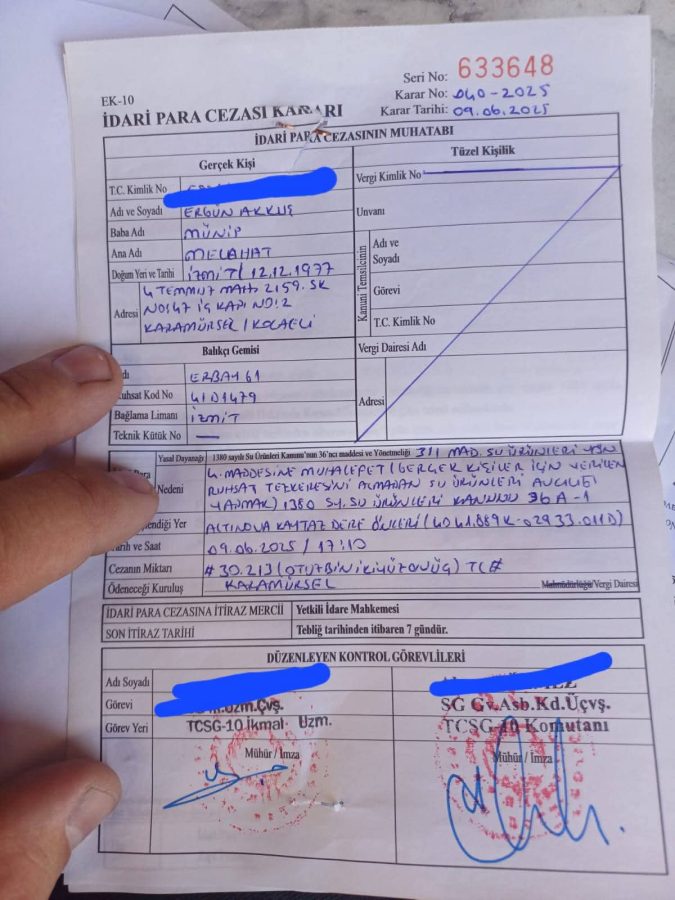 Seri No: 633648
EK-10
Karar No: 040-2025
İDARİ PARA CEZASI KARARI
Karar Tarihi: 09.06.2025
İDARİ PARA CEZASININ MUHATABI
Gerçek Kişi
Tüzel Kişilik
T.C. Kimlik No
Vergi Kimlik No
Adı ve Soyadı ERGÜN AKKUŞ
Unvanı
Baba Adı MÜNİP
Ana Adı MELAHAT
Kanuni Temsilcinin
Adı ve Soyadı
Doğum Yeri ve Tarihi İZMİT / 12.12.1977
Görevi
Adresi
4 TEMMUZ MAH. 2159. SK
NO:47 İÇ KAPI NO:2
KARAMÜRSEL / KOCAELİ
T.C. Kimlik No
Balıkçı Gemisi
Vergi Dairesi Adı
ERBAY 61
Ruhsat Kod No 41D1479
Adresi
Bağlama Limanı İZMİT
Teknik Kütük No —
Yasal Dayanağı 1380 sayılı Su Ürünleri Kanunu'nun 36'ncı maddesi ve Yönetmeliği 3/1 MAD. SU ÜRÜNLERİ YÖN
Para
Nedeni
4. MADDESİNE MUHALEFET (GERÇEK KİŞİLER İÇİN VERİLEN
RUHSAT TEZKERESİNİ ALMADAN SU ÜRÜNLERİ AVCILIĞI
YAPMAK) 1380 SY. SU ÜRÜNLERİ KANUNU 36 A-1
Yer ALTINOVA KAYTAZ DERE ÖNLERİ (4041.889K-02933.011D)
Tarih ve Saat 09.06.2025 / 17:10
Cezanın Miktarı # 30.213 (OTUZBİNİKİYÜZONÜÇ) TL #
Ödeneceği Kuruluş KARAMÜRSEL Malmüdürlüğü/Vergi Dairesi
İDARİ PARA CEZASINA İTİRAZ MERCİİ Yetkili İdare Mahkemesi
SON İTİRAZ TARİHİ Tebliğ tarihinden itibaren 7 gündür.
DÜZENLEYEN KONTROL GÖREVLİLERİ
Adı Soyadı
Görevi Uzm.Çvş. SG Gv.Asb.Kd.Üçvş.
Görev Yeri TCSG-10 İkmal Uzm. TCSG-10 Komutanı
Mühür / İmza Mühür / İmza